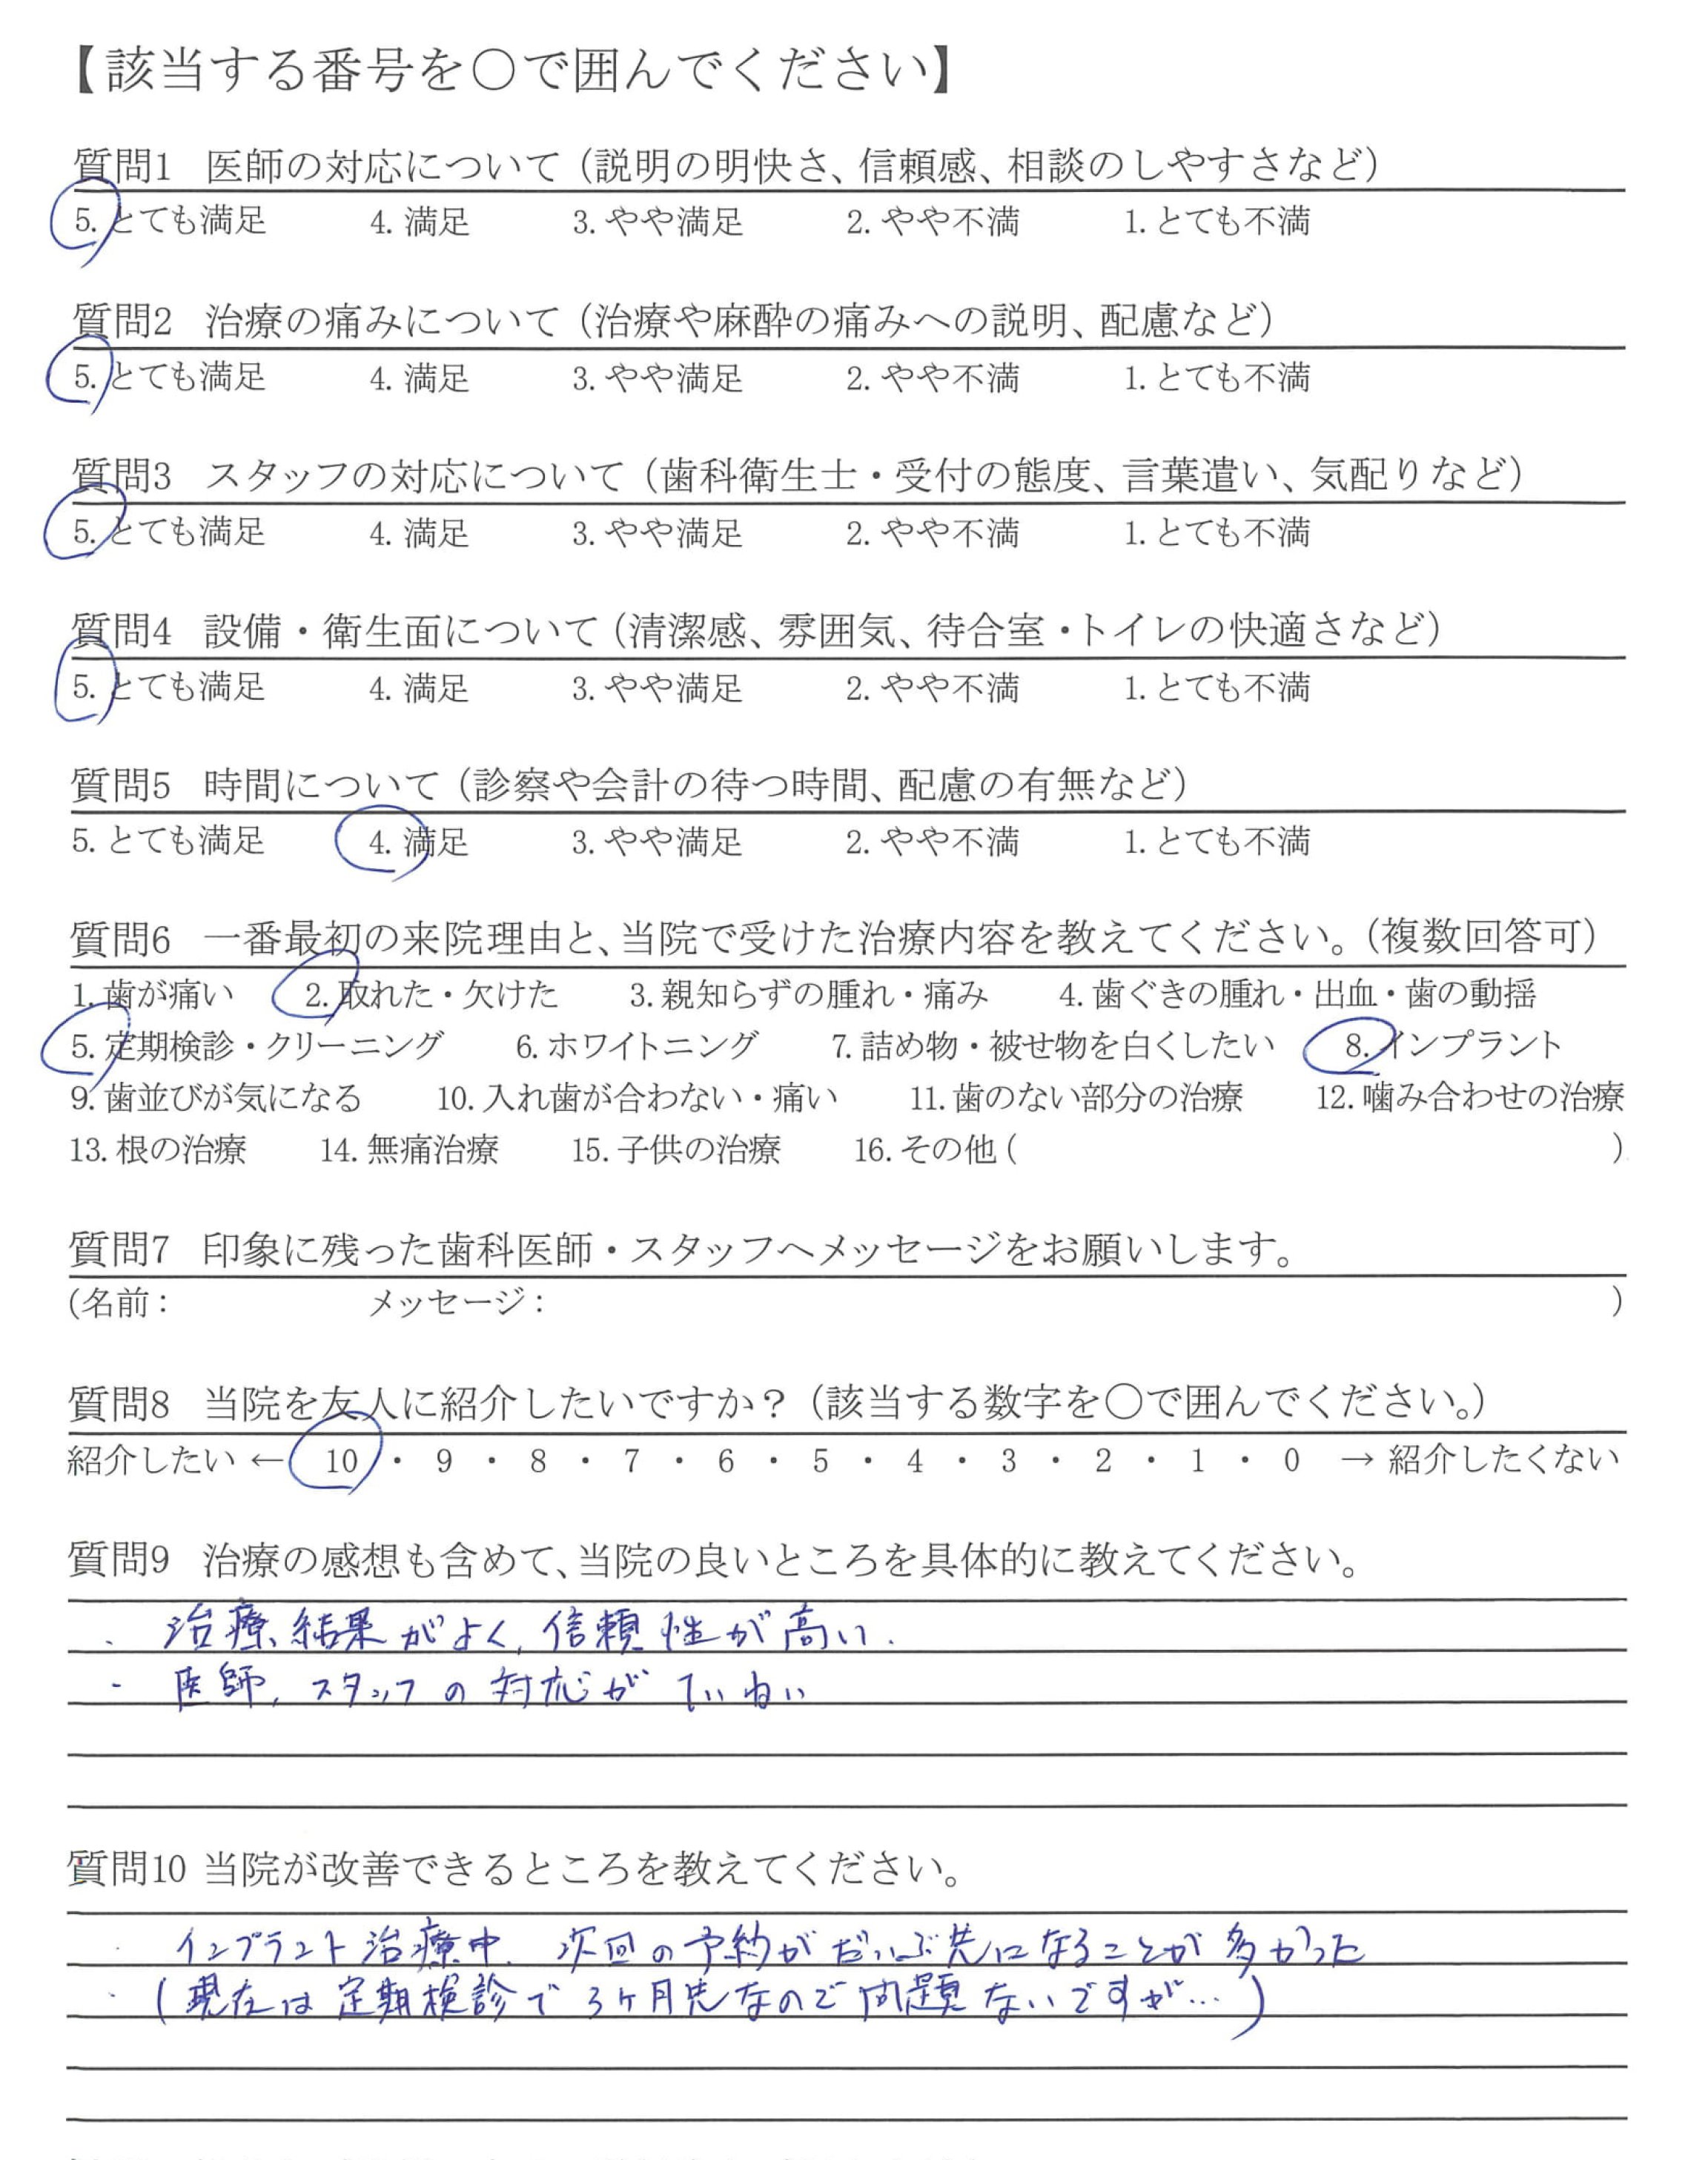 【該当する番号を○で囲んでください】
質問1 医師の対応について（説明の明快さ、信頼感、相談のしやすさなど）
5. とても満足 4. 満足 3. やや満足 2. やや不満 1. とても不満
質問2 治療の痛みについて（治療や麻酔の痛みへの説明、配慮など）
5. とても満足 4. 満足 3. やや満足 2. やや不満 1. とても不満
質問3 スタッフの対応について（歯科衛生士・受付の態度、言葉遣い、気配りなど）
5. とても満足 4. 満足 3. やや満足 2. やや不満 1. とても不満
質問4 設備・衛生面について（清潔感、雰囲気、待合室・トイレの快適さなど）
5. とても満足 4. 満足 3. やや満足 2. やや不満 1. とても不満
質問5 時間について（診察や会計の待つ時間、配慮の有無など）
5. とても満足 4. 満足 3. やや満足 2. やや不満 1. とても不満
質問6 一番最初の来院理由と、当院で受けた治療内容を教えてください。（複数回答可）
1. 歯が痛い 2. 取れた・欠けた 3. 親知らずの腫れ・痛み 4. 歯ぐきの腫れ・出血・歯の動揺
5. 定期検診・クリーニング 6. ホワイトニング 7. 詰め物・被せ物を白くしたい 8. インプラント
9. 歯並びが気になる 10. 入れ歯が合わない・痛い 11. 歯のない部分の治療 12. 噛み合わせの治療
13. 根の治療 14. 無痛治療 15. 子供の治療 16. その他 ( )
質問7 印象に残った歯科医師・スタッフへメッセージをお願いします。
(名前： メッセージ： )
質問8 当院を友人に紹介したいですか？（該当する数字を○で囲んでください。）
紹介したい ← 10 ・ 9 ・ 8 ・ 7 ・ 6 ・ 5 ・ 4 ・ 3 ・ 2 ・ 1 ・ 0 → 紹介したくない
質問9 治療の感想も含めて、当院の良いところを具体的に教えてください。
・ 治療、結果がよく、信頼性が高い.
・ 医師、スタッフの対応がていねい
質問10 当院が改善できるところを教えてください。
・ インプラント治療中、次回の予約がだいぶ先になることが多かった
・ (現在は定期検診で3ヶ月先なので問題ないですが…)